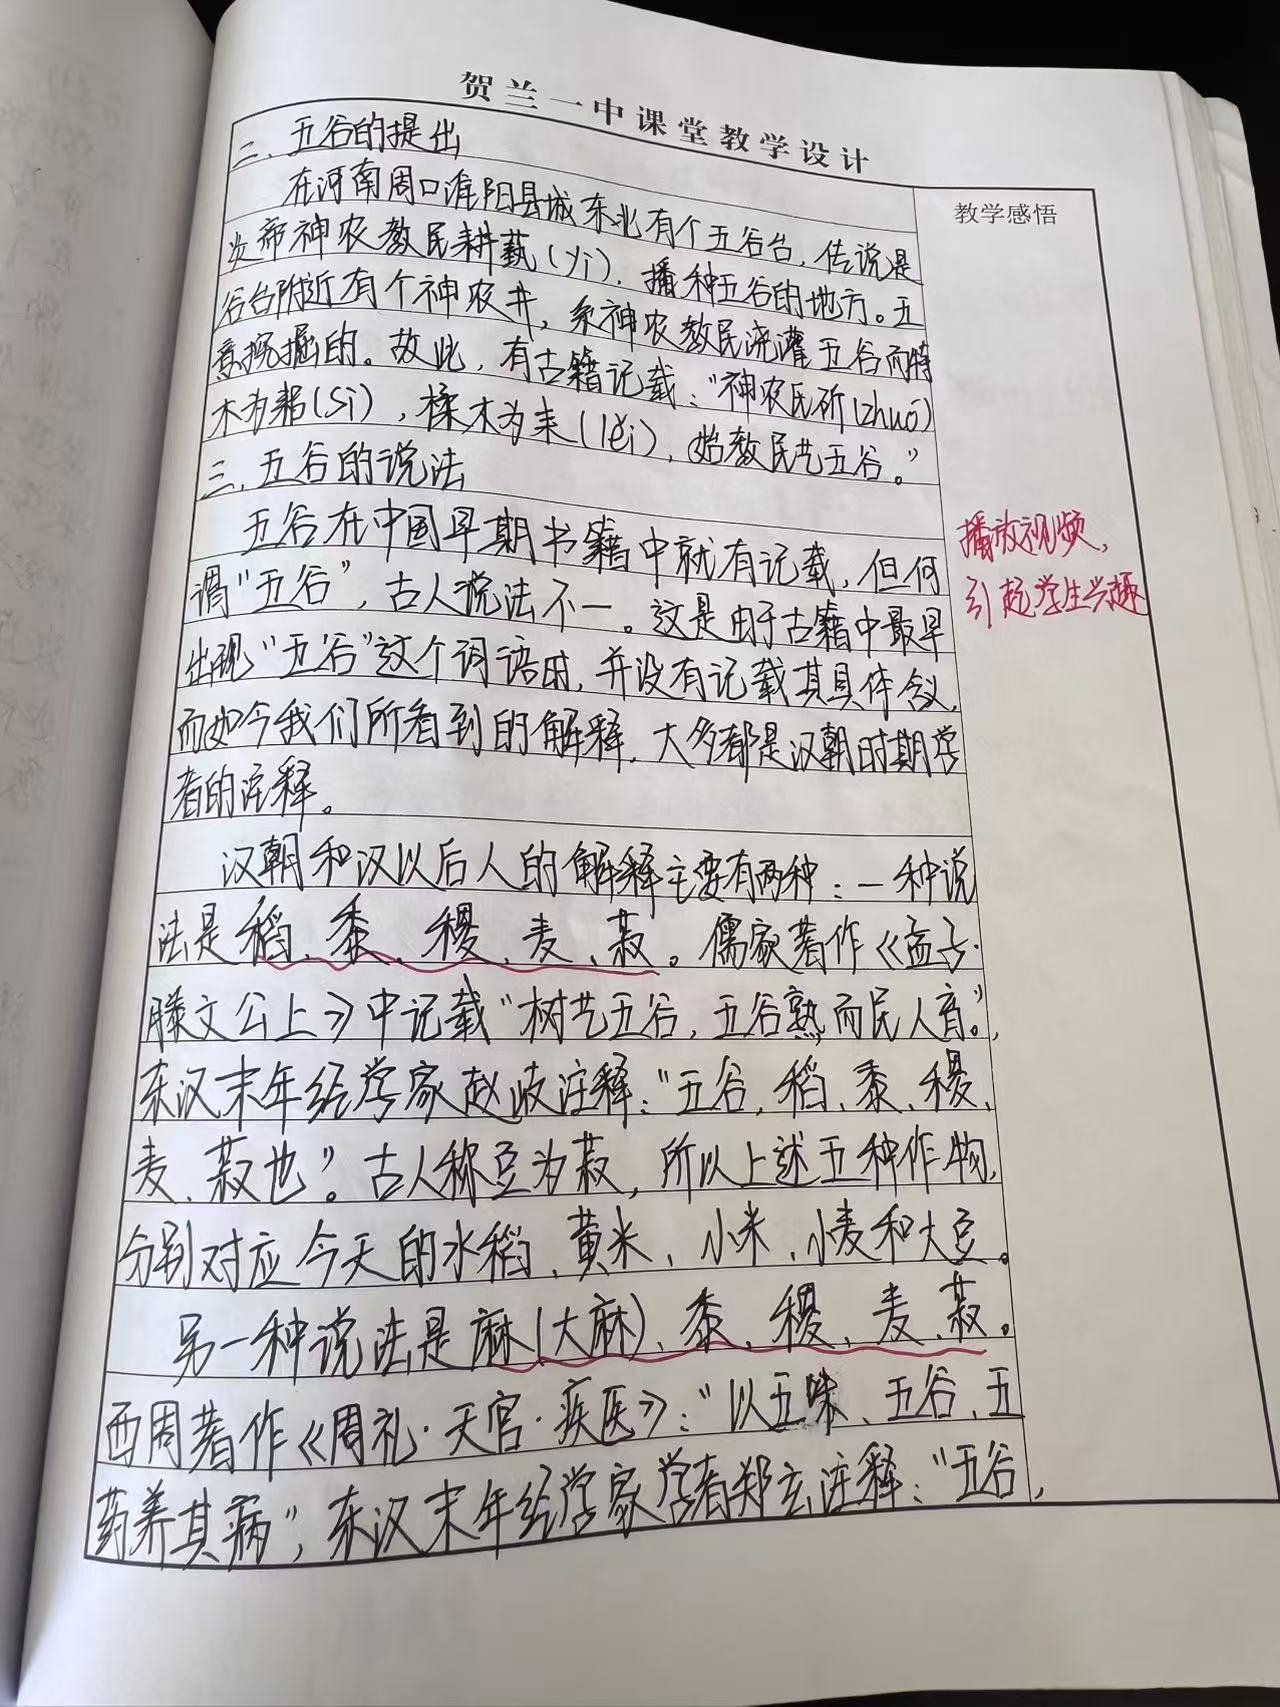 贺兰一中课堂教学设计
教学感悟
二、五谷的提出
在河南周口淮阳县城东北有个五谷台，传说是
炎帝神农教民耕藝(yì)，播种五谷的地方。五
谷台附近有个神农井，系神农教民浇灌五谷而特
意挖掘的。故此，有古籍记载："神农氏斫(zhuó)
木为耜(sì)，揉木为耒(lěi)，始教民艺五谷。"
三、五谷的说法
五谷在中国早期书籍中就有记载，但何
谓"五谷"，古人说法不一。这是由于古籍中最早
出现"五谷"这个词语时，并没有记载其具体含义，
而如今我们所看到的解释，大多都是汉朝时期学
者的注释。
播放视频，
引起学生兴趣
汉朝和汉以后人的解释主要有两种：一种说
法是稻、黍、稷、麦、菽。儒家著作《孟子·
滕文公上》中记载"树艺五谷，五谷熟而民人育。"，
东汉末年经学家赵岐注释："五谷，稻、黍、稷、
麦、菽也"。古人称豆为菽，所以上述五种作物，
分别对应今天的水稻、黄米、小米、小麦和大豆。
另一种说法是麻(大麻)、黍、稷、麦、菽。
西周著作《周礼·天官·疾医》："以五味、五谷、五
药养其病"，东汉末年经学家学者郑玄注释："五谷，